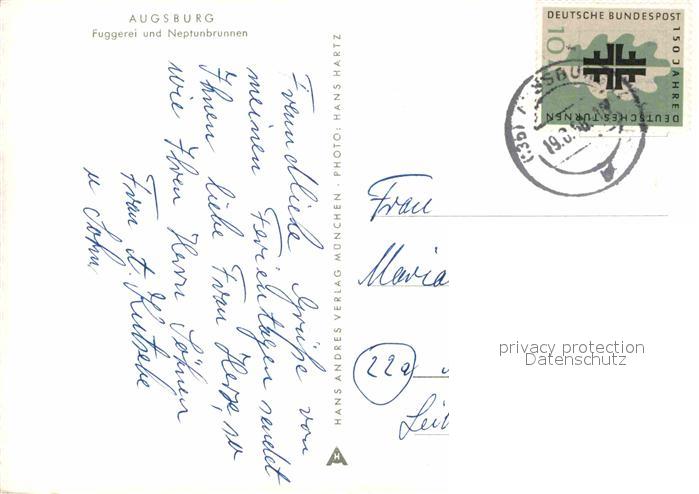 AUGSBURG
Fuggerei und Neptunbrunnen
Freundliche Grüße von
meinen Ferientagen sendet
Ihnen liebe Frau Herz, so
wie Ihren Herrn Söhnen
Frau A.
u Sohn
HANS ANDRES VERLAG MÜNCHEN · PHOTO: HANS HARTZ
DEUTSCHE BUNDESPOST
10
150 JAHRE
DEUTSCHES TURNEN
Frau
Maria
22a
privacy protection
Datenschutz